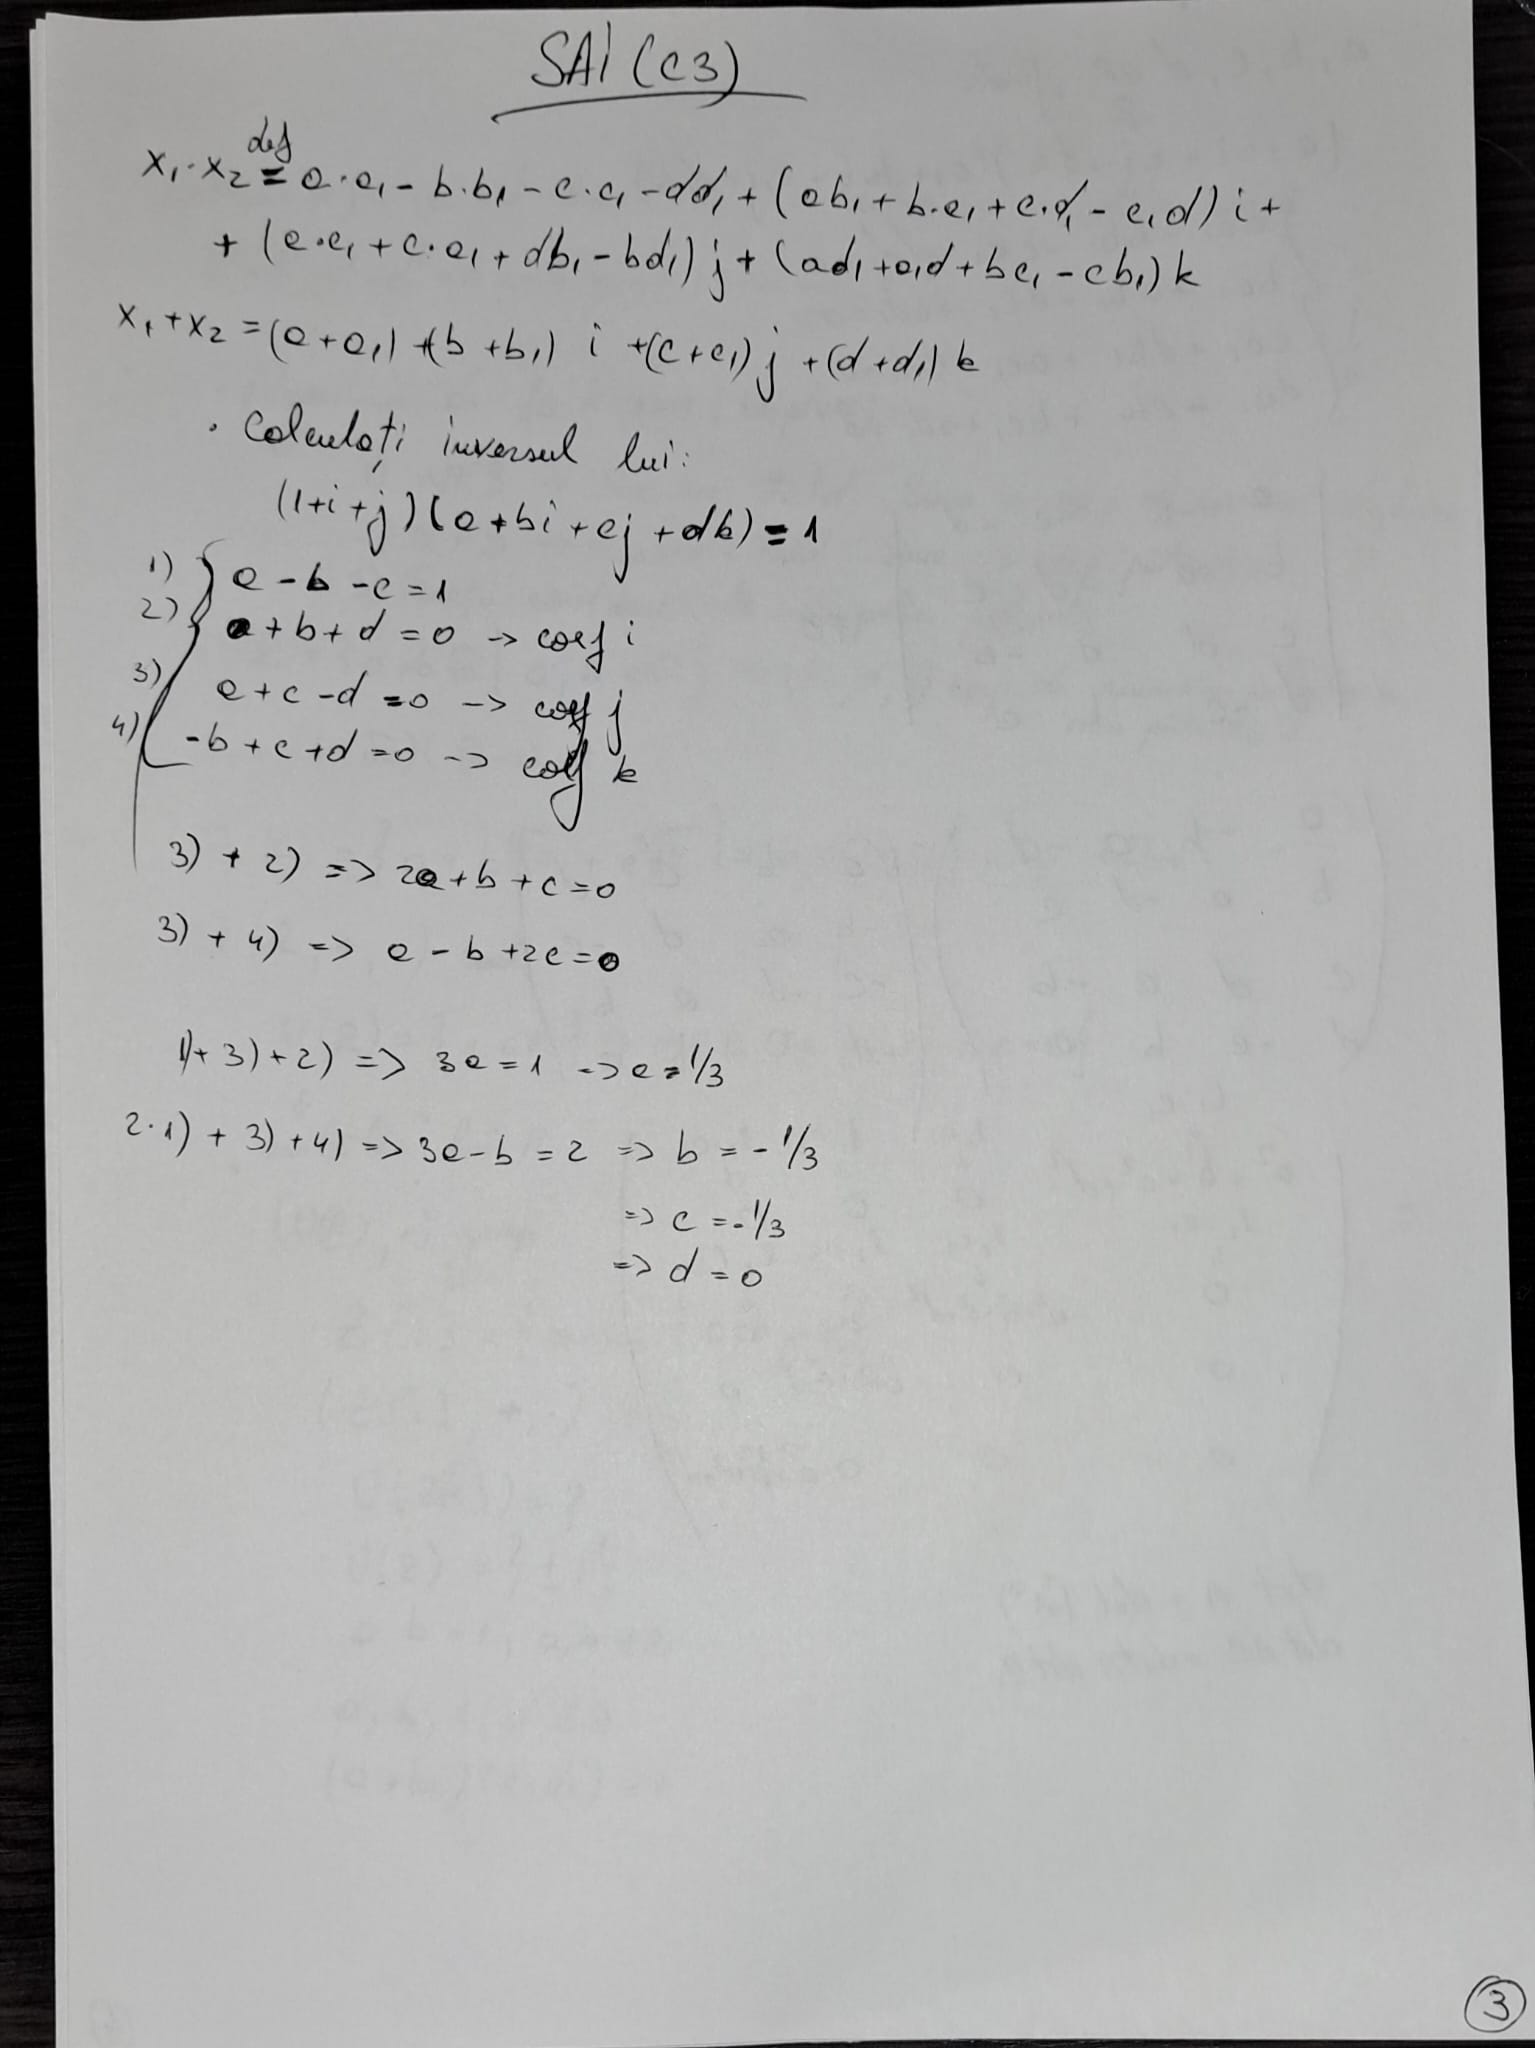 SAI (C3)
x₁·x₂ def= a·a₁ - b·b₁ - c·c₁ - dd₁ + (ab₁ + b·a₁ + c·d₁ - c₁d) i +
+ (a·c₁ + c·a₁ + db₁ - bd₁) j + (ad₁ + a₁d + bc₁ - cb₁) k
x₁ + x₂ = (a + a₁) + (b + b₁) i + (c + c₁) j + (d + d₁) k
· Calculați inversul lui:
(1+i+j)(a+bi+cj+dk) = 1
1) { a - b - c = 1
2) a + b + d = 0 -> coef i
3) a + c - d = 0 -> coef j
4) -b + c + d = 0 -> coef k
3) + 2) => 2a + b + c = 0
3) + 4) => a - b + 2c = 0
1) + 3) + 2) => 3a = 1 -> a = 1/3
2·1) + 3) + 4) => 3a - b = 2 => b = - 1/3
=> c = - 1/3
=> d = 0
3